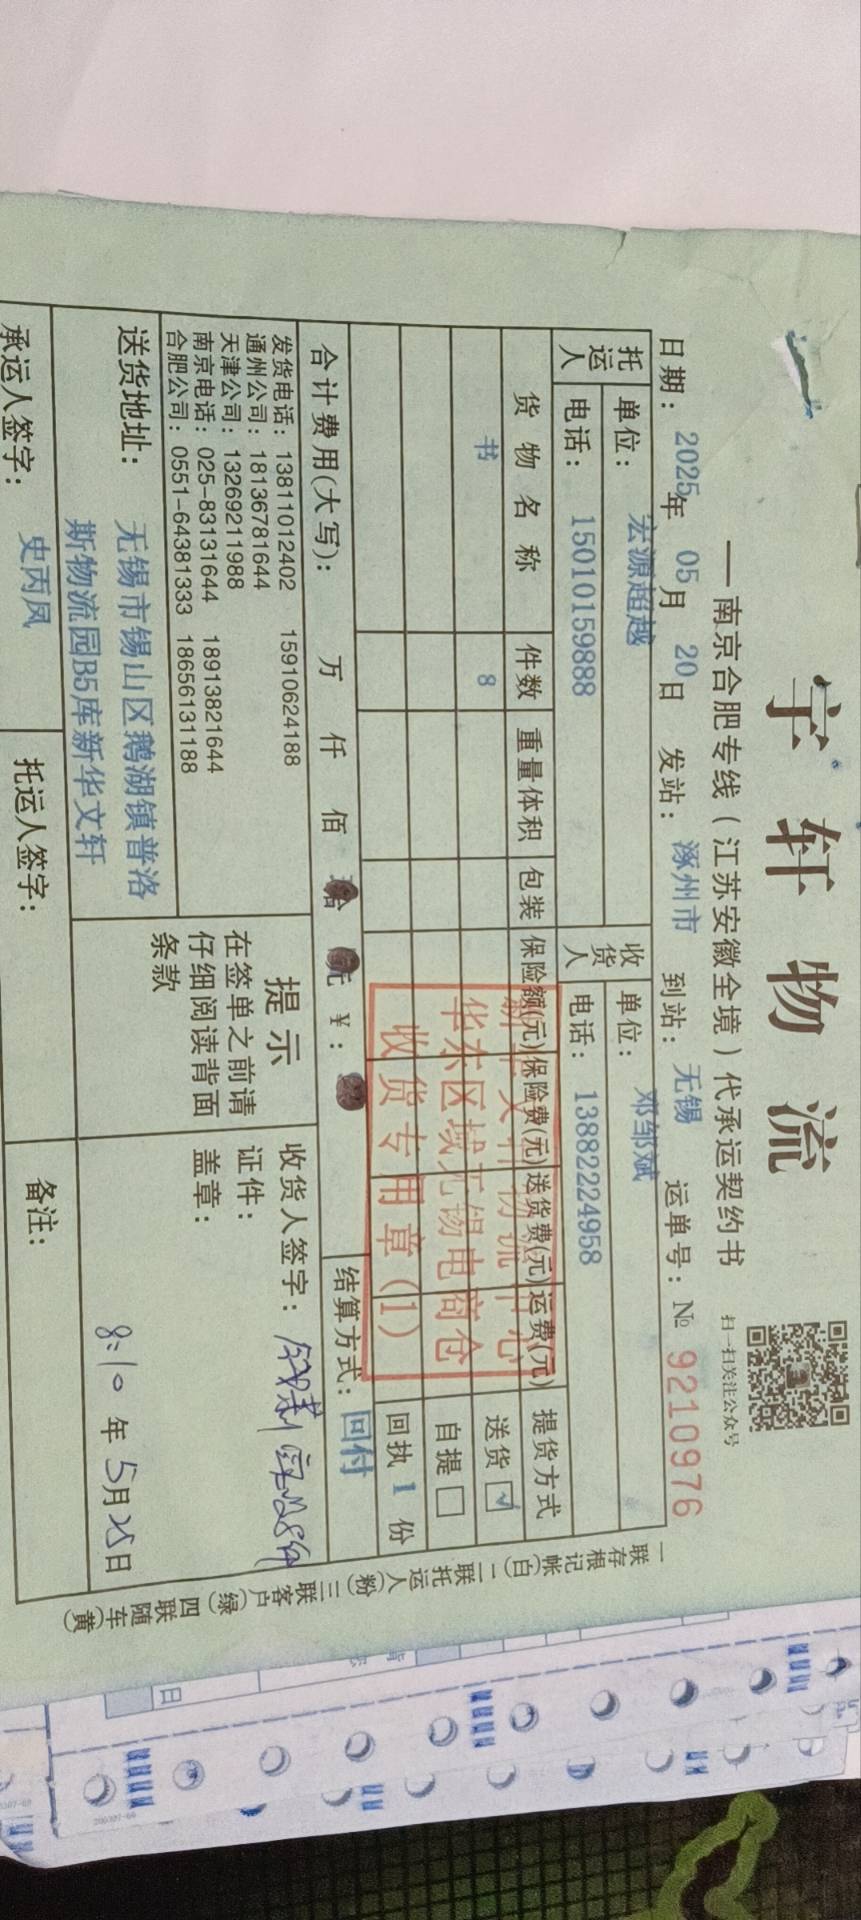 宇轩物流
扫一扫关注公众号
—南京合肥专线（江苏安徽全境）代承运契约书
日期：2025年 05月 20日 发站：涿州市 到站：无锡 运单号：№ 9210976
托运人 单位：宏源超越 收货人 单位：邓邹斌
电话：15010159888 电话：13882224958
货物名称 件数 重量体积 包装 保险额(元) 保险费(元) 送货费(元) 运费(元) 提货方式
书 8 送货☑
自提□
回执 1 份
华东区域无锡电商仓
收货专用章(1)
合计费用(大写)： 万 仟 佰 元 ¥： 结算方式：回付
发货电话：13811012402 15910624188
通州公司：18136781644
天津公司：13269211988
南京电话：025-83131644 18913821644
合肥公司：0551-64381333 18656131188
提示
在签单之前请
仔细阅读背面
条款
收货人签字：
证件：
盖章：
8:10 年 5月25日
送货地址：无锡市锡山区鹅湖镇普洛
斯物流园B5库新华文轩
承运人签字：史丙凤 托运人签字： 备注：
一联存根记帐(白) 二联托运人(粉) 三联客户(绿) 四联随车(黄)